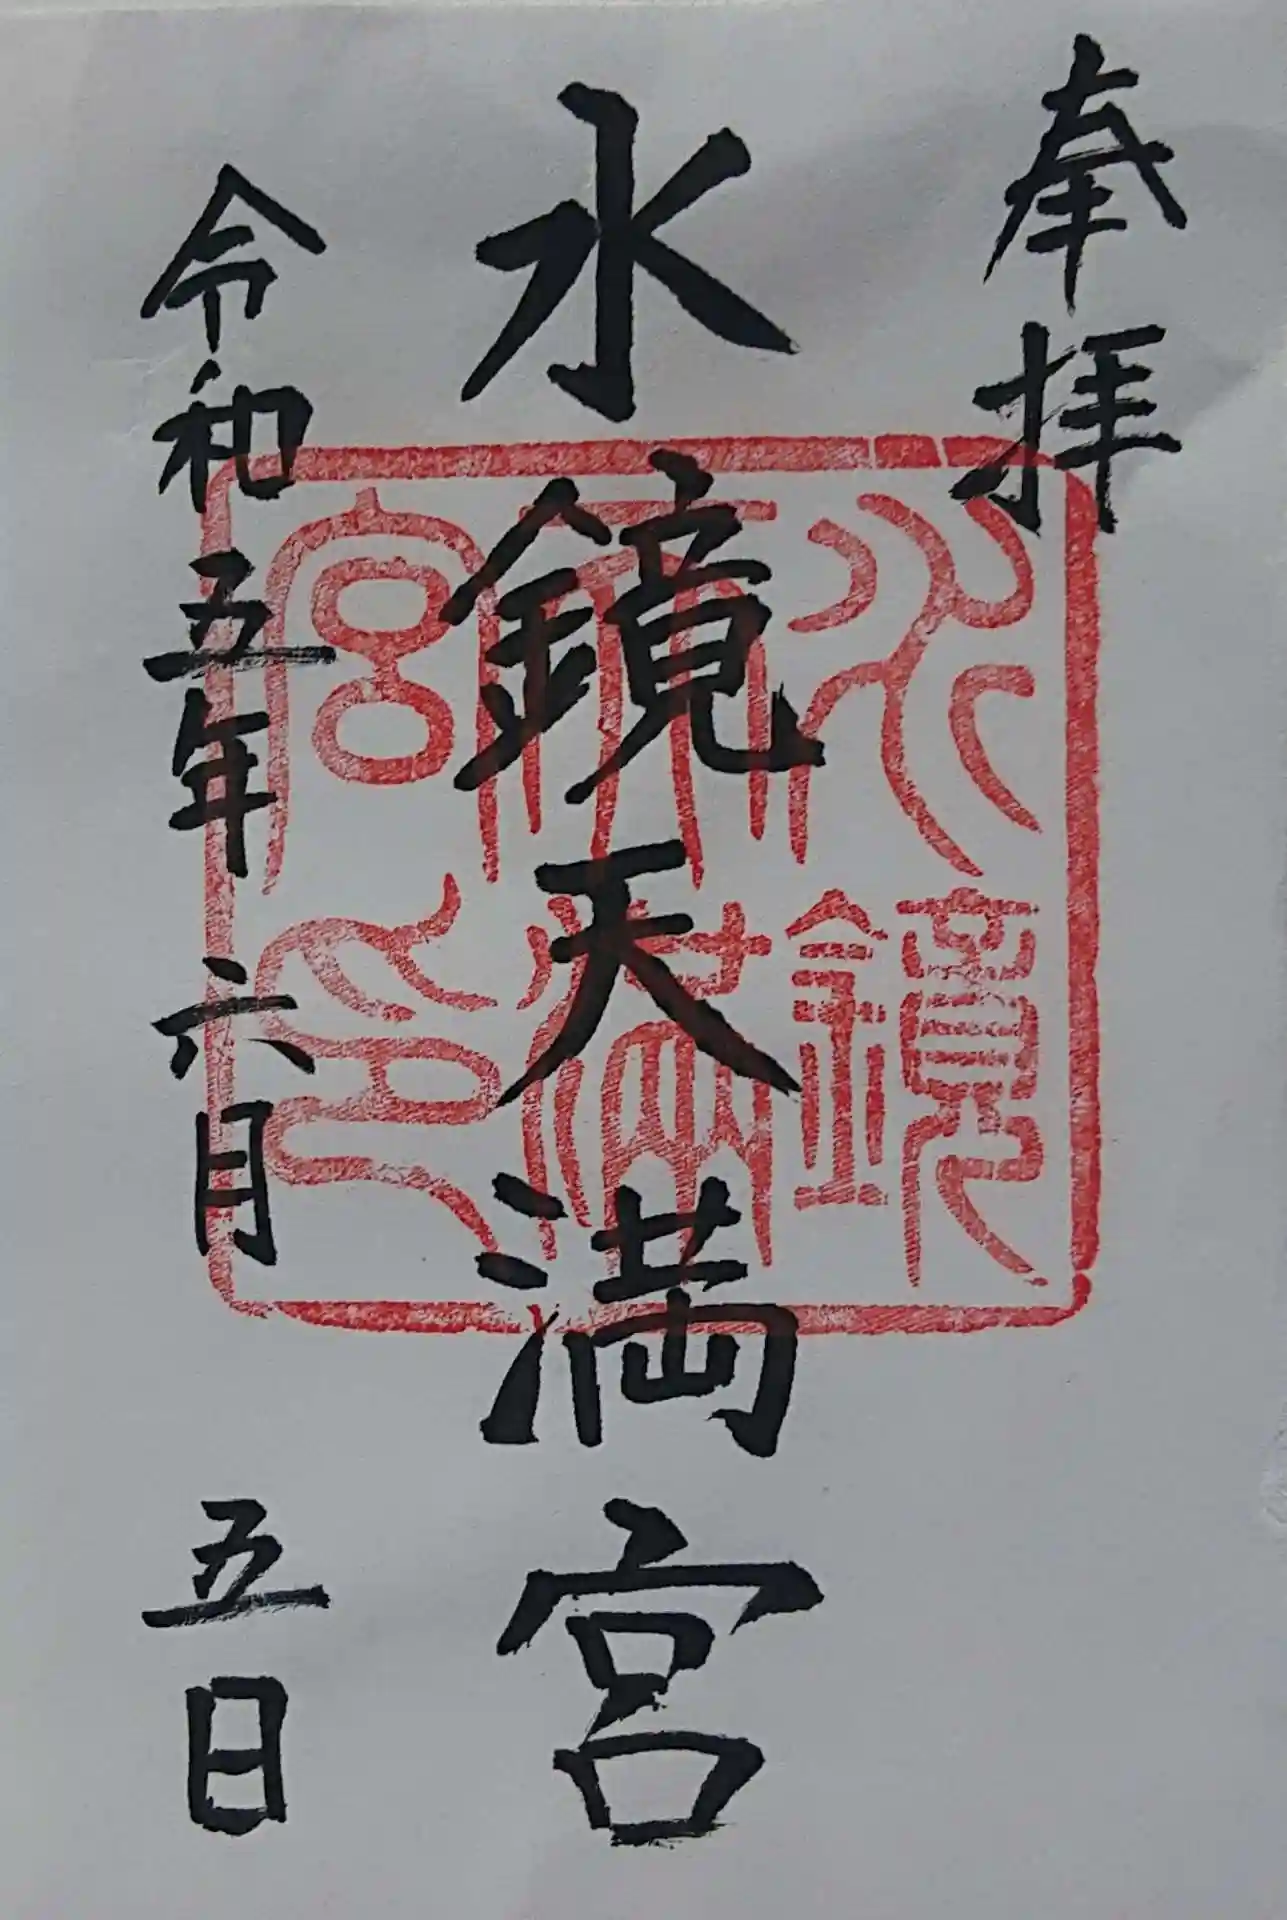 奉拝
水鏡天満宮
水鏡天満宮印
令和五年六月五日